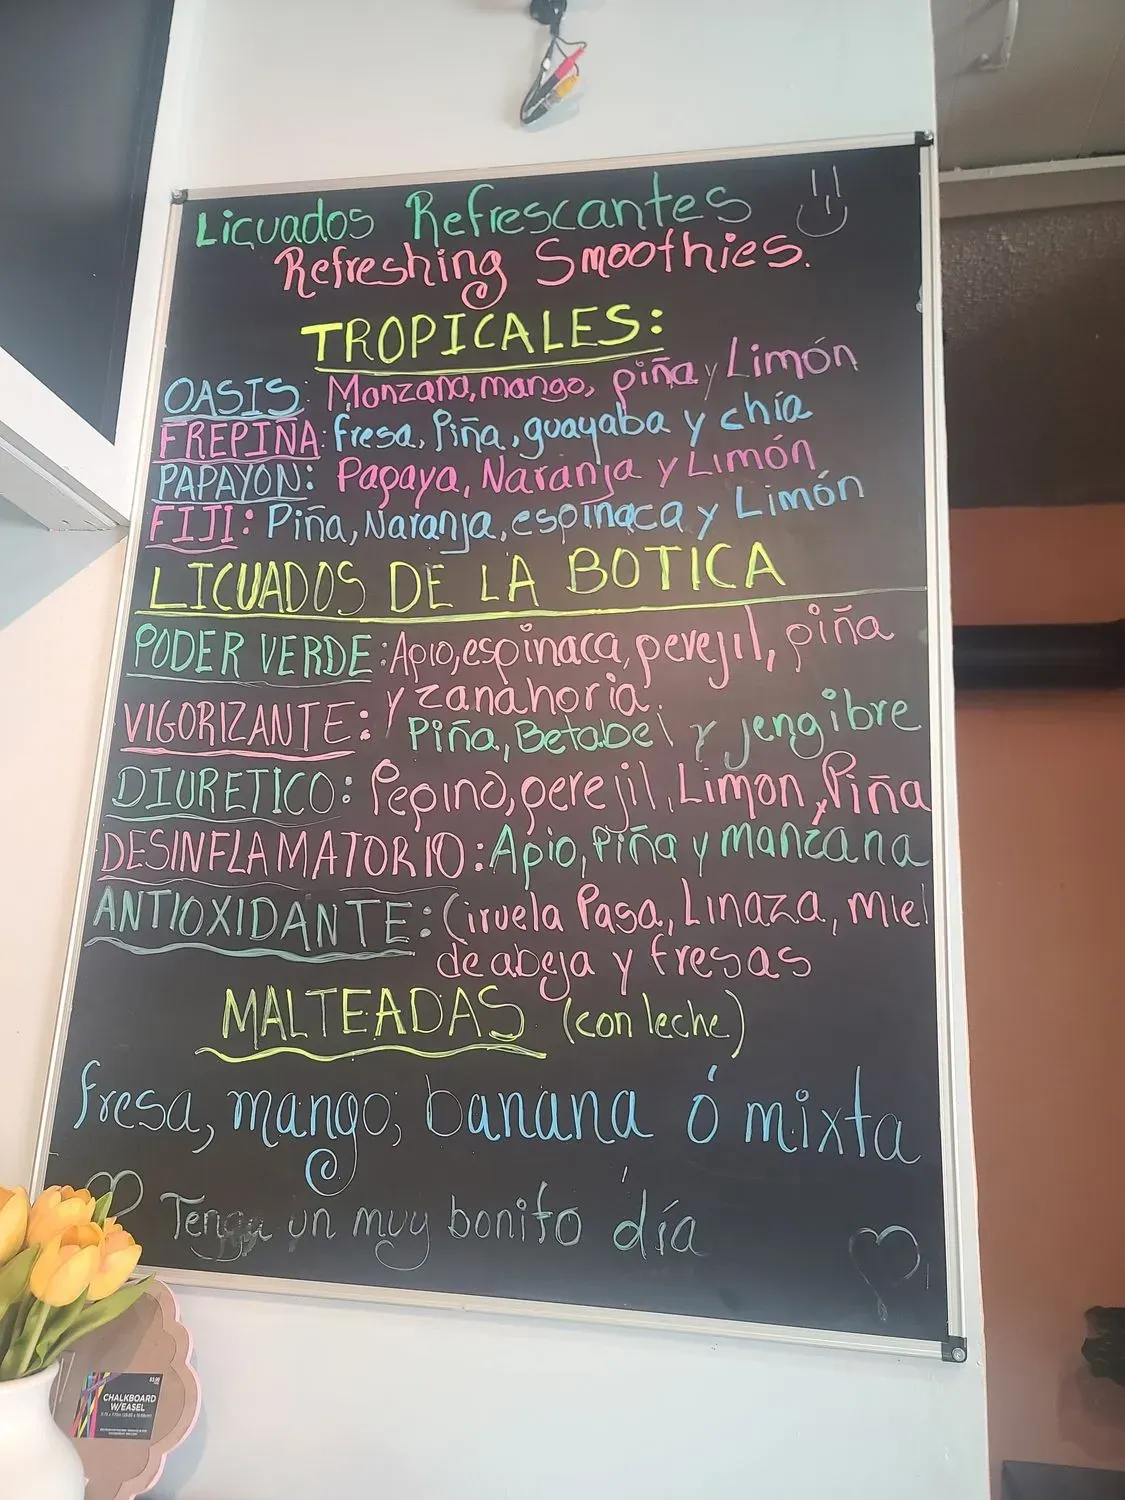 Licuados Refrescantes
Refreshing Smoothies.
TROPICALES:
OASIS: Manzana, mango, piña y Limón
FREPIÑA: fresa, Piña, guayaba y chía
PAPAYÓN: Papaya, Naranja y Limón
FIJI: Piña, Naranja, espinaca y Limón
LICUADOS DE LA BOTICA
PODER VERDE: Apio, espinaca, perejil, piña
y zanahoria.
VIGORIZANTE: Piña, Betabel y jengibre
DIURETICO: Pepino, perejil, Limon, Piña
DESINFLAMATORIO: Apio, Piña y manzana
ANTIOXIDANTE: Ciruela Pasa, Linaza, miel
de abeja y fresas
MALTEADAS (con leche)
fresa, mango, banana ó mixta
Tenga un muy bonito día
CHALKBOARD
W/EASEL